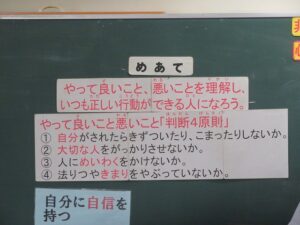 めあて
やって良いこと、悪いことを理解し、
いつも正しい行動ができる人になろう。
やって良いこと悪いこと「判断4原則」
① 自分がされたらきずついたり、こまったりしないか。
② 大切な人をがっかりさせないか。
③ 人にめいわくをかけないか。
④ 法りつやきまりをやぶっていないか。
自分に自信を
持つ